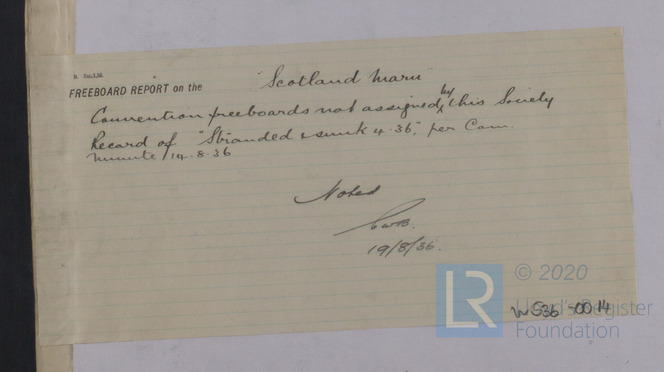 FREEBOARD REPORT on the "Scotland Maru"
Convention freeboards not assigned by this Society
Record of "Stranded & sunk 4.36", per Com.
minute 14.8.36
Noted
19/8/36.
LR © 2020
Lloyd's Register
Foundation
W536-0014